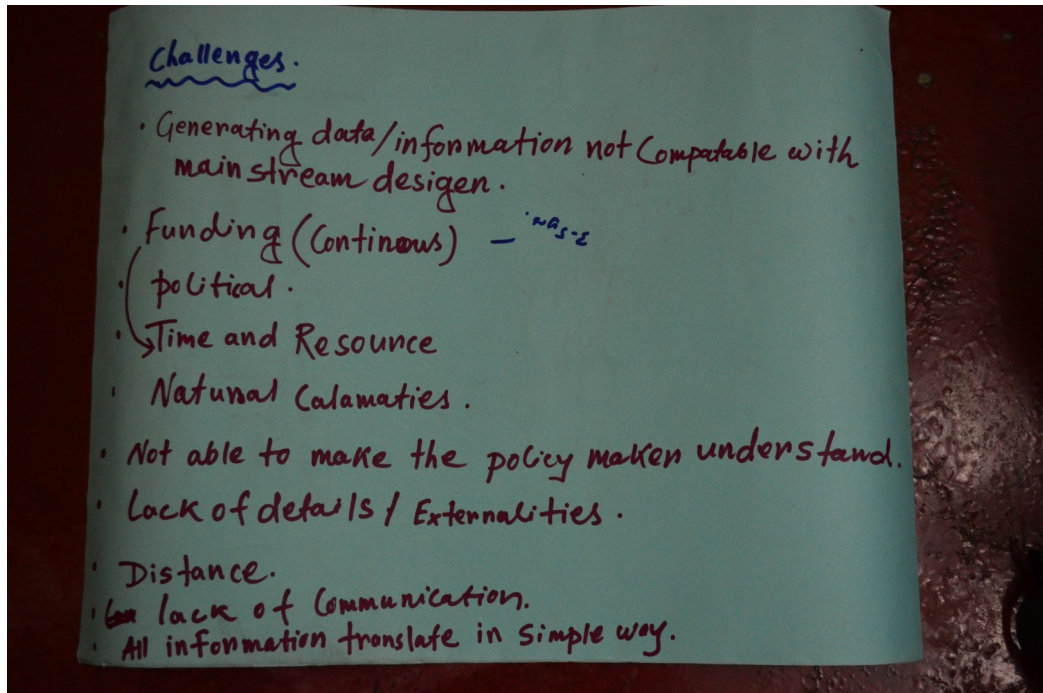 Challenges.
· Generating data/information not Compatable with
main stream desigen.
· Funding (Continous) –
· political.
· Time and Resource
· Natural Calamaties.
· Not able to make the policy maker understand.
· Lack of details / Externalities.
· Distance.
· lack of Communication.
· All information translate in Simple way.